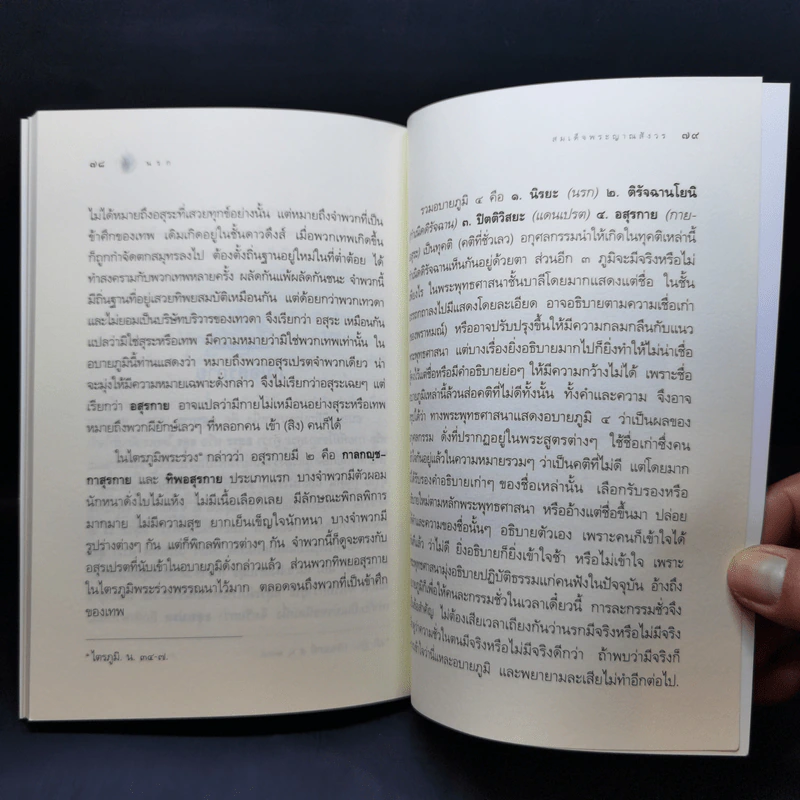 ๗๘ นรก
ไม่ได้หมายถึงอสุระที่เสวยทุกข์อย่างนั้น แต่หมายถึงจำพวกที่เป็น
ข้าศึกของเทพ เดิมเกิดอยู่ในชั้นดาวดึงส์ เมื่อพวกเทพเกิดขึ้น
ก็ถูกกำจัดตกสมุทรลงไป ต้องตั้งถิ่นฐานอยู่ใหม่ในที่ต่ำต้อย ได้
ทำสงครามกับพวกเทพหลายครั้ง ผลัดกันแพ้ผลัดกันชนะ จำพวกนี้
มีถิ่นฐานที่อยู่เสวยทิพยสมบัติเหมือนกัน แต่ด้อยกว่าพวกเทวดา
และไม่ยอมเป็นบริษัทบริวารของเทวดา จึงเรียกว่า อสุระ เหมือนกัน
แปลว่ามิใช่สุระหรือเทพ มีความหมายว่ามิใช่พวกเทพเท่านั้น ใน
อบายภูมินี้ท่านแสดงว่า หมายถึงพวกอสุรเปรตจำพวกเดียว น่า
จะมุ่งให้มีความหมายเฉพาะดังกล่าว จึงไม่เรียกว่าอสุระเฉยๆ แต่
เรียกว่า อสุรกาย อาจแปลว่ามีกายไม่เหมือนอย่างสุระหรือเทพ
หมายถึงพวกผียักษ์เลวๆ ที่หลอกคน เข้า (สิง) คนก็ได้
ในไตรภูมิพระร่วง* กล่าวว่า อสุรกายมี ๒ คือ กาลกญฺช-
กาสุรกาย และ ทิพอสุรกาย ประเภทแรก บางจำพวกมีตัวผอม
นักหนาดังใบไม้แห้ง ไม่มีเนื้อเลือดเลย มีลักษณะพิกลพิการ
มากมาย ไม่มีความสุข ยากเย็นเข็ญใจนักหนา บางจำพวกมี
รูปร่างต่างๆ กัน แต่ก็พิกลพิการต่างๆ กัน จำพวกนี้ก็ดูจะตรงกับ
อสุรเปรตที่นับเข้าในอบายภูมิดังกล่าวแล้ว ส่วนพวกทิพยอสุรกาย
ในไตรภูมิพระร่วงพรรณนาไว้มาก ตลอดจนถึงพวกที่เป็นข้าศึก
ของเทพ
* ไตรภูมิ. น. ๓๔-๗.
สมเด็จพระญาณสังวร ๗๙
รวมอบายภูมิ ๔ คือ ๑. นิรยะ (นรก) ๒. ติรัจฉานโยนิ
(กำเนิดดิรัจฉาน) ๓. ปิตติวิสยะ (แดนเปรต) ๔. อสุรกาย (กาย-
อสุระ) เป็นทุคติ (คติที่ชั่วเลว) อกุศลกรรมนำให้เกิดในทุคติเหล่านี้
กำเนิดดิรัจฉานเห็นกันอยู่ด้วยตา ส่วนอีก ๓ ภูมิจะมีจริงหรือไม่
อย่างไร ในพระพุทธศาสนาชั้นบาลีโดยมากแสดงแต่ชื่อ ในชั้น
อรรถกถาลงไปมีแสดงโดยละเอียด อาจอธิบายตามความเชื่อเก่า
ของพราหมณ์) หรืออาจปรับปรุงขึ้นให้มีความกลมกลืนกับแนว
พระพุทธศาสนา แต่บางเรื่องยิ่งอธิบายมากไปก็ยิ่งทำให้ไม่น่าเชื่อ
แต่ชื่อหรือมีคำอธิบายย่อๆ ให้มีความกว้างไม่ได้ เพราะชื่อ
อบายภูมิเหล่านี้ล้วนส่อคติที่ไม่ดีทั้งนั้น ทั้งคำและความ จึงอาจ
ได้ว่า ทางพระพุทธศาสนาแสดงอบายภูมิ ๔ ว่าเป็นผลของ
อกุศลกรรม ดั่งที่ปรากฏอยู่ในพระสูตรต่างๆ ใช้ชื่อเก่าซึ่งคน
กันอยู่แล้วในความหมายรวมๆ ว่าเป็นคติที่ไม่ดี แต่โดยมาก
ได้รับรองคำอธิบายเก่าๆ ของชื่อเหล่านั้น เลือกรับรองหรือ
อธิบายใหม่ตามหลักพระพุทธศาสนา หรืออ้างแต่ชื่อขึ้นมา ปล่อย
คำและความของชื่อนั้นๆ อธิบายตัวเอง เพราะคนก็เข้าใจได้
แล้ว ว่าไม่ดี ยิ่งอธิบายก็ยิ่งเข้าใจช้า หรือไม่เข้าใจ เพราะ
พระพุทธศาสนามุ่งอธิบายปฏิบัติธรรมแก่คนฟังในปัจจุบัน อ้างถึง
อบายภูมิก็เพื่อให้คนละกรรมชั่วในเวลาเดี๋ยวนี้ การละกรรมชั่วจึง
สำคัญ ไม่ต้องเสียเวลาเถียงกันว่านรกมีจริงหรือไม่มีจริง
ความชั่วในตนมีจริงหรือไม่มีจริงดีกว่า ถ้าพบว่ามีจริงก็
ว่านี่แหละอบายภูมิ และพยายามละเสียไม่ทำอีกต่อไป.